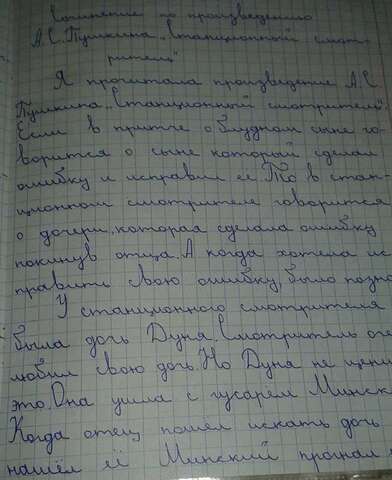 Сочинение по произведению
А.С.Пушкина „Станционный смот-
ритель"
Я прочитала произведение А.С
Пушкина „Станционный смотритель".
Если в притче о блудном сыне го-
ворится о сыне который сделал
ошибку и исправил её. То в стан-
ционном смотрителе говорится
о дочери, которая сделала ошибку
покинув отца. А когда хотела ис
править свою ошибку, было поздно
У станционного смотрителя
была дочь Дуня. Смотритель оче
любил свою дочь. Но Дуня не цени
это. Она ушла с гусарем Минск
Когда отец пошел искать дочь
нашёл её Минский прогнал